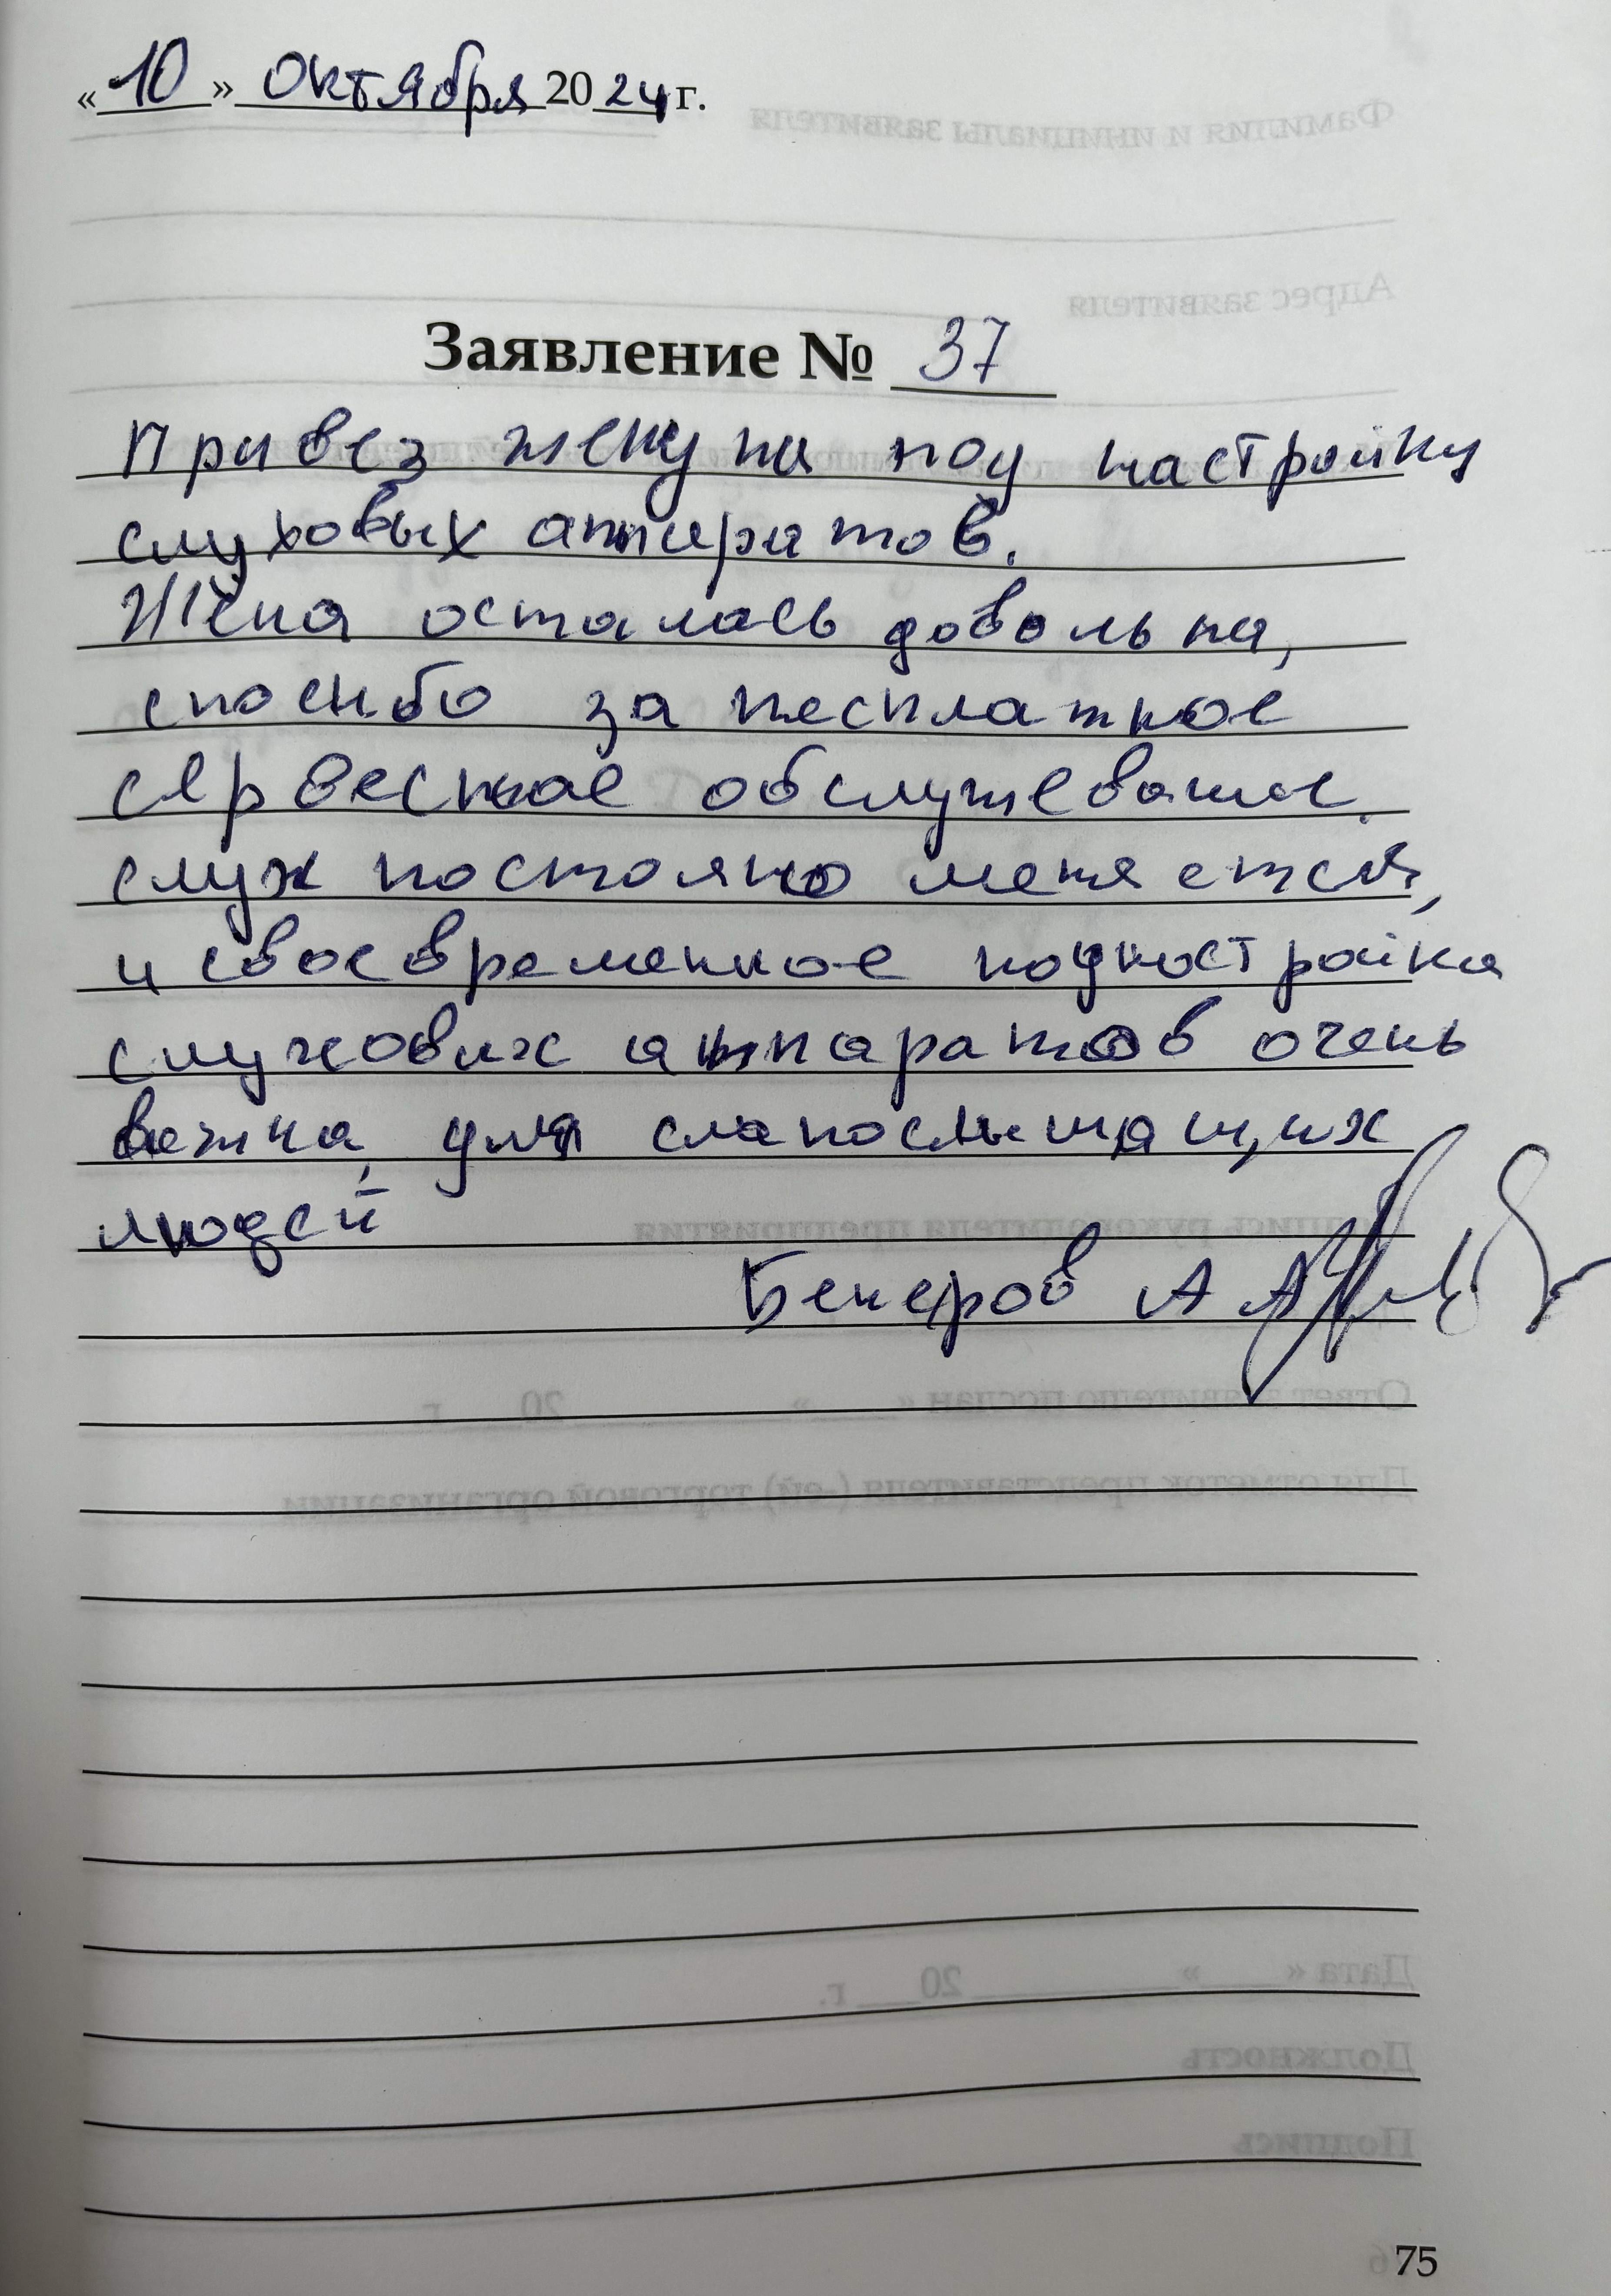 «10» Октября 2024 г.
Заявление № 37
Привез жену на под настройку
слуховых аппаратов.
Жена осталась довольна,
спосибо за бесплатное
сервесное обслужевание.
слух постояно меняется,
и своевременное поднастройка
слуховых аппаратов очень
важна, для слабослышащих
людей
Бекеров А А
75